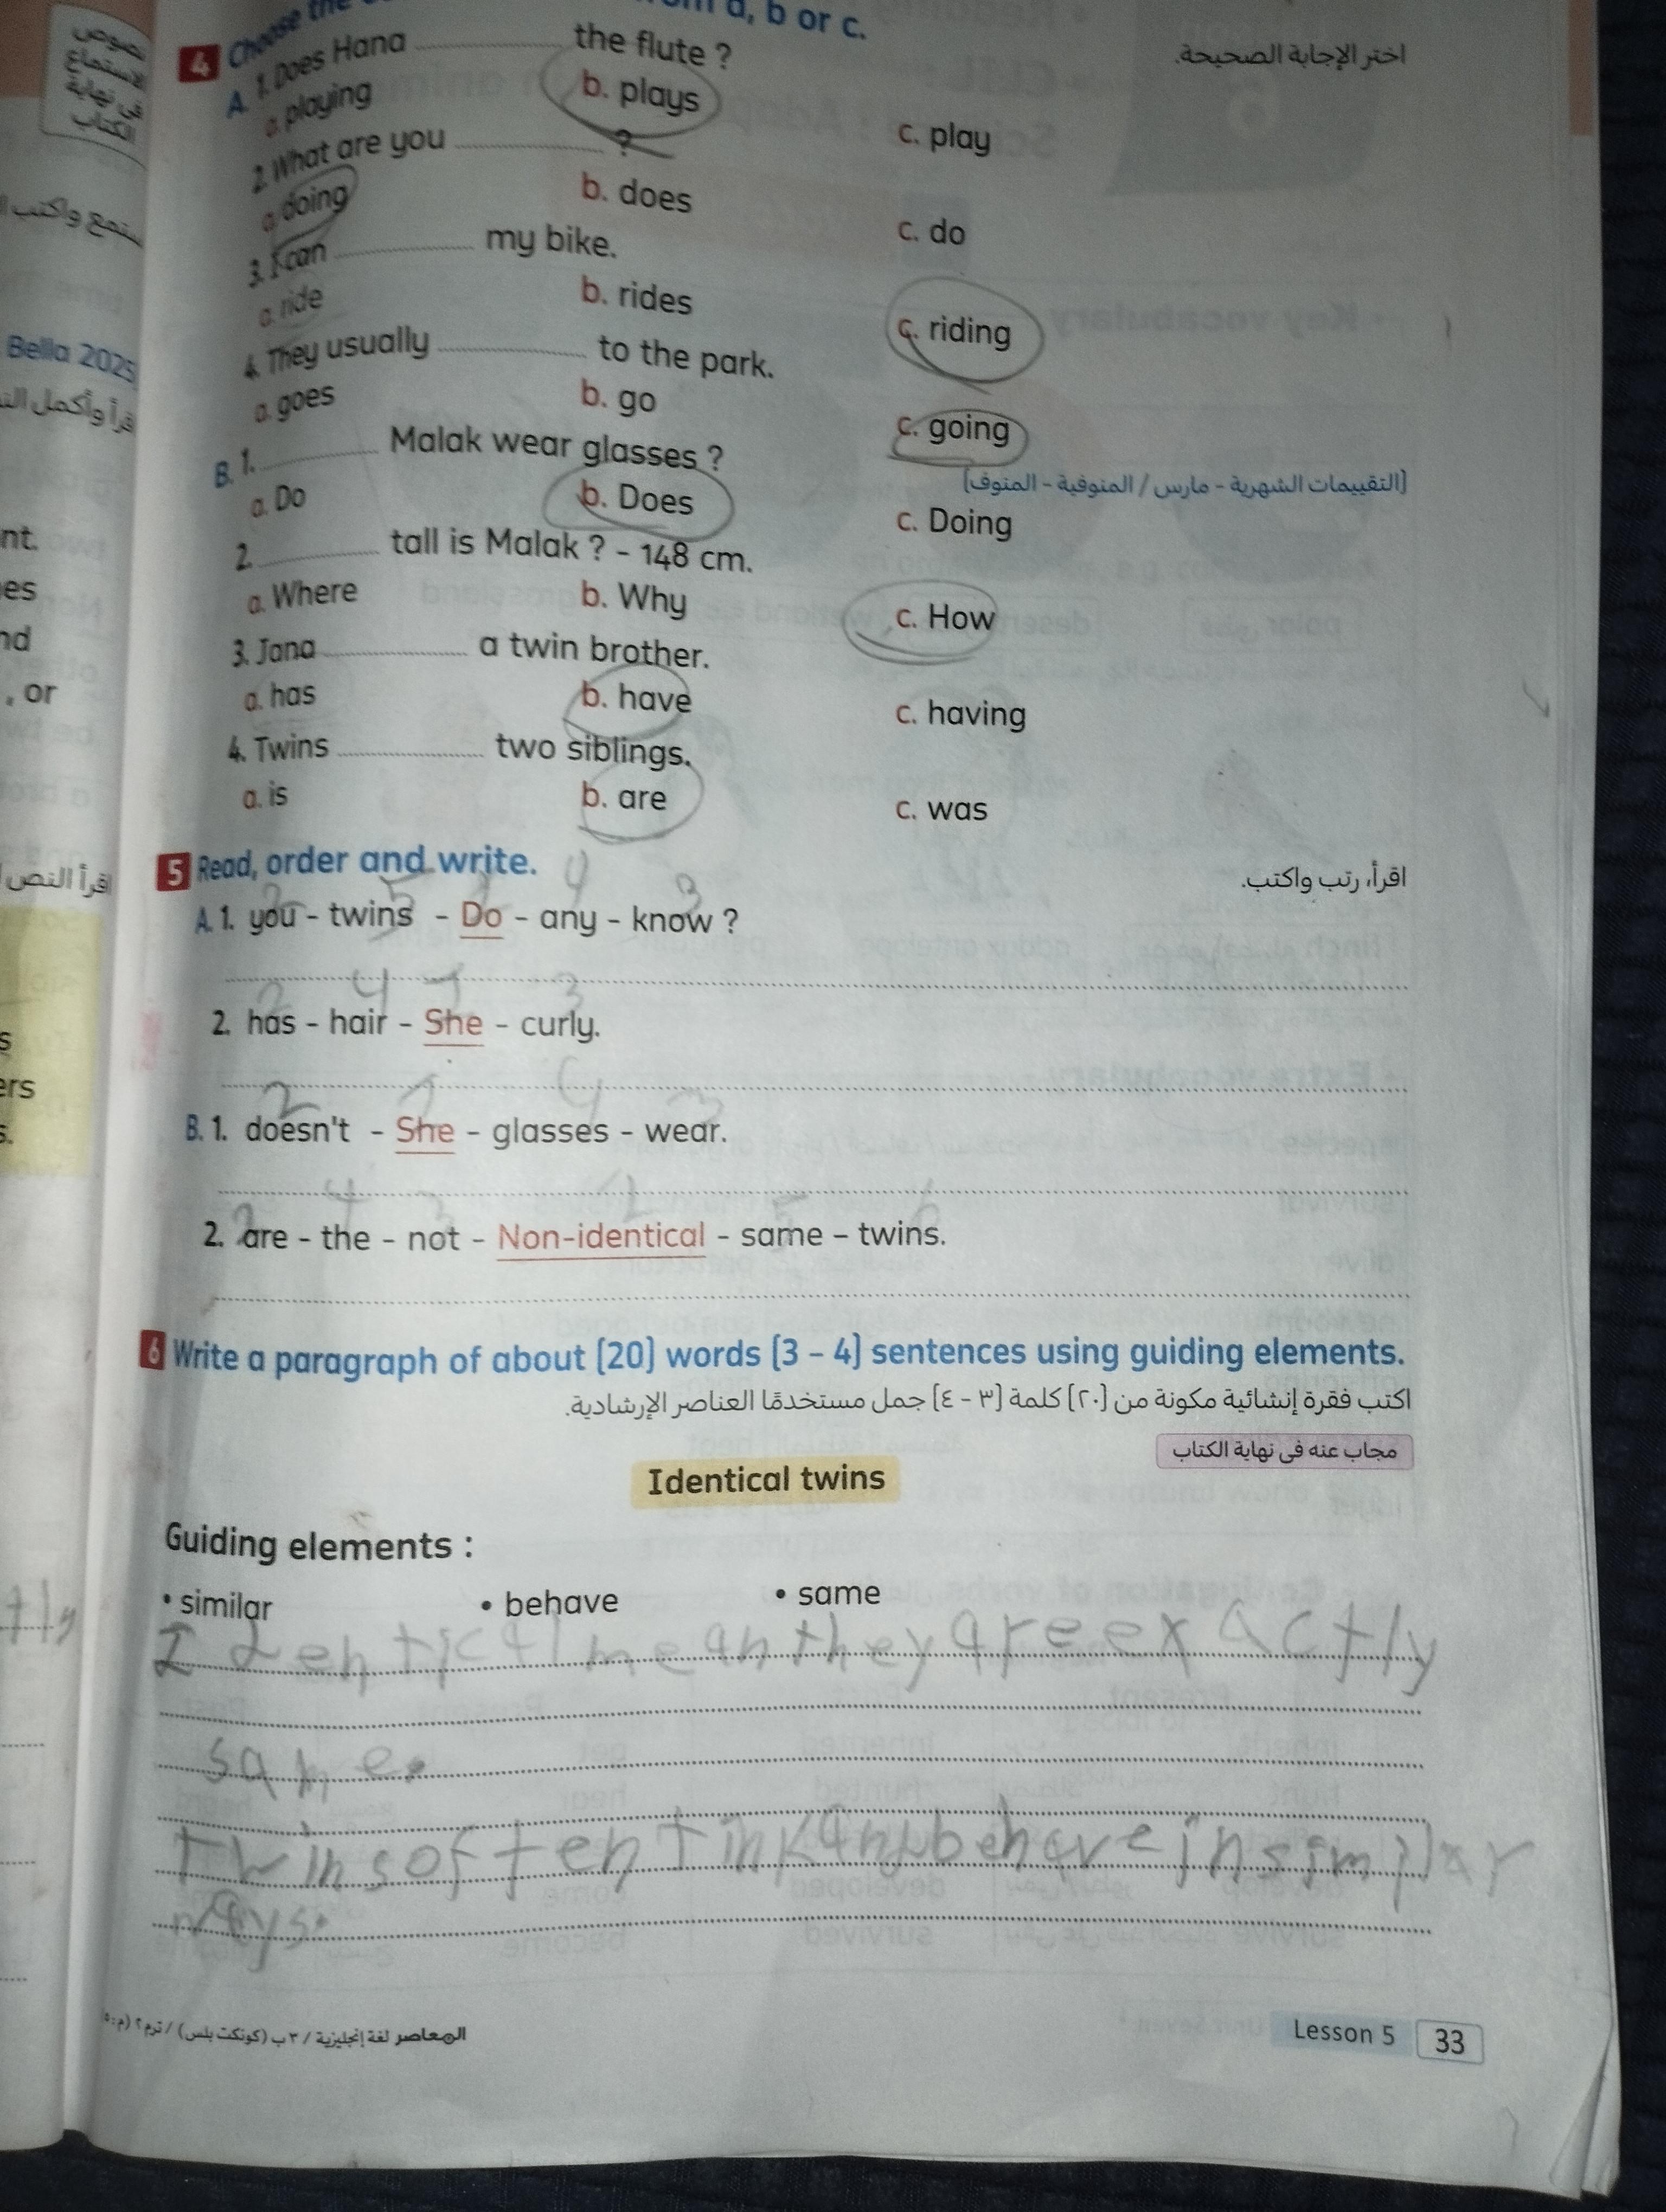 نصوص
الاستماع
فى نهاية
الكتاب
ستمع واكتب
Bella 2025
nt.
es
nd
, or
اقرأ النص
s
ers
s.
tly
4 Choose the a, b or c.
اختر الإجابة الصحيحة.
A. 1. Does Hana ............ the flute ?
a. playing b. plays c. play
2. What are you ............ ?
a. doing b. does c. do
3. I can ............ my bike.
a. ride b. rides c. riding
4. They usually ............ to the park.
a. goes b. go c. going
B. 1. ............ Malak wear glasses ?
(التقييمات الشهرية - مارس / المنوفية - المنوف)
a. Do b. Does c. Doing
2. ............ tall is Malak ? - 148 cm.
a. Where b. Why c. How
3. Jana ............ a twin brother.
a. has b. have c. having
4. Twins ............ two siblings.
a. is b. are c. was
5 Read, order and write.
اقرأ، رتب واكتب.
2 5 1 4 3
A. 1. you - twins - Do - any - know ?
2 4 1 3
2. has - hair - She - curly.
2 1 4 3
B. 1. doesn't - She - glasses - wear.
2 4 3 1 5 6
2. are - the - not - Non-identical - same - twins.
6 Write a paragraph of about (20) words (3 - 4) sentences using guiding elements.
اكتب فقرة إنشائية مكونة من (٢٠) كلمة (٣ - ٤) جمل مستخدمًا العناصر الإرشادية.
مجاب عنه فى نهاية الكتاب
Identical twins
Guiding elements :
• similar • behave • same
Identical mean they are exactly
same.
twins often tink and behave in similar
ways.
المعاصر لغة إنجليزية / ٣ ب (كونكت بلس) / ترم ٢ (م : ٥)
Lesson 5 33